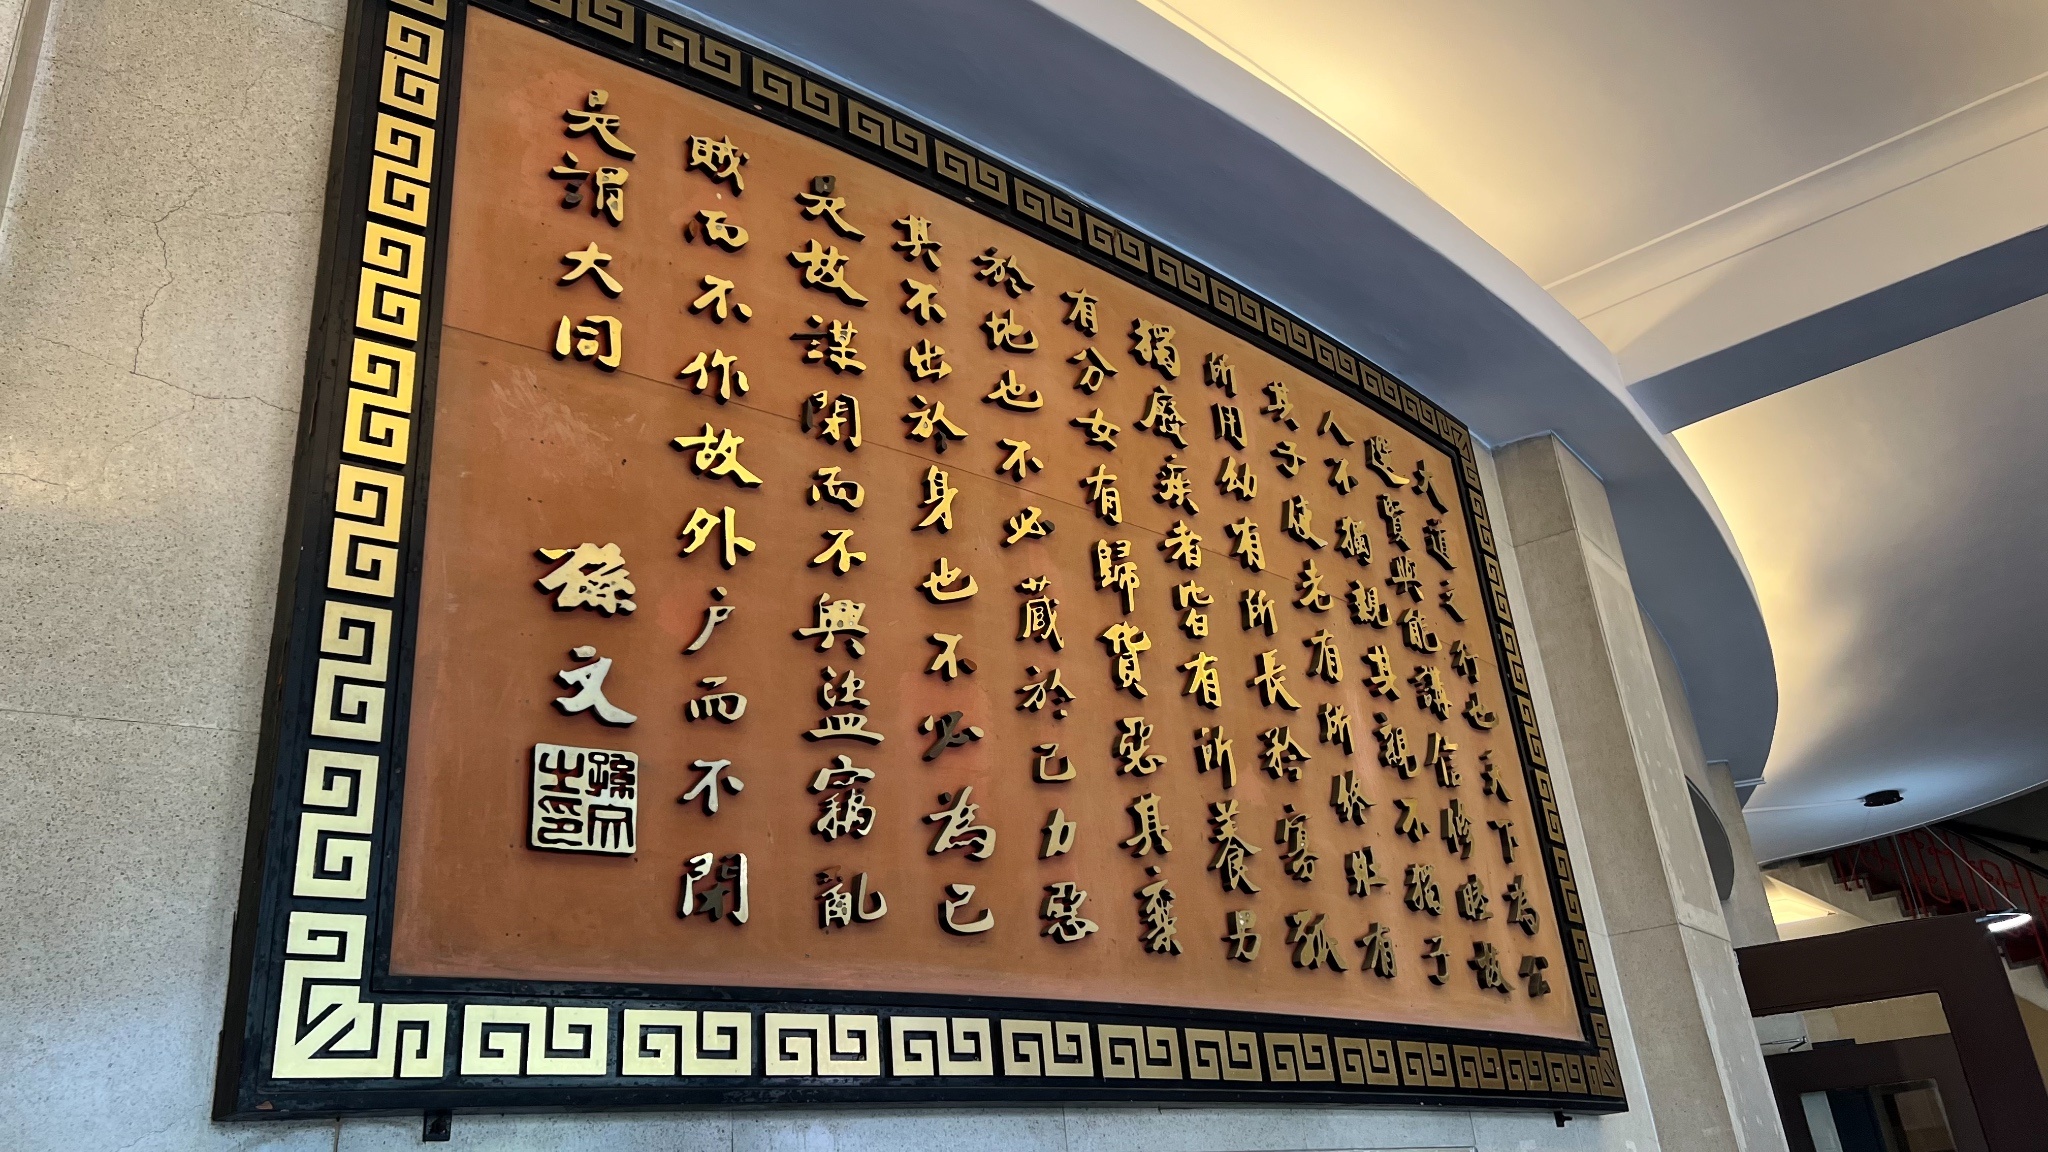 大道之行也天下為公
選賢與能講信修睦故
人不獨親其親不獨子
其子使老有所終壯有
所用幼有所長矜寡孤
獨廢疾者皆有所養男
有分女有歸貨惡其棄
於地也不必藏於己力惡
其不出於身也不必為己
是故謀閉而不興盜竊亂
賊而不作故外戶而不閉
是謂大同
孫文
孫文之印